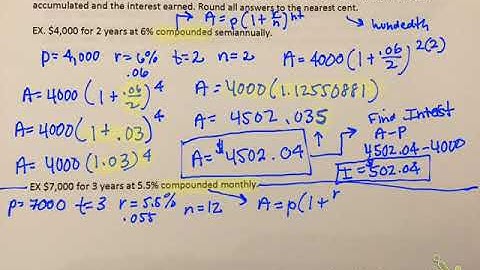 accumulated and the interest earned. Round all answers to the nearest cent.
→ A = p(1 + r/n)^nt
hundredth
EX. $4,000 for 2 years at 6% compounded semiannually.
p = 4,000 r = 6% t = 2 n = 2
.06
A = 4000(1 + .06/2)^2(2)
A = 4000(1 + .06/2)^4
A = 4000(1.12550881)
A = 4000(1 + .03)^4
A = 4502.035
A = 4000(1.03)^4
A = $4502.04
Find Interest
A - P
4502.04 - 4000
I = $502.04
EX $7,000 for 3 years at 5.5% compounded monthly.
p = 7000 t = 3 r = 5.5% n = 12
.055
A = p(1 + r